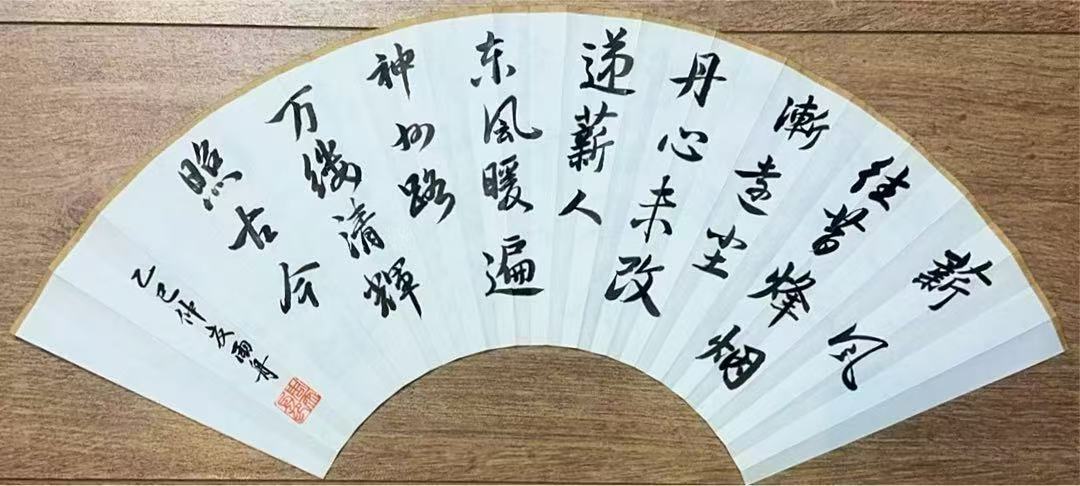 薪风
往昔烽烟
渐远尘
丹心未改
递薪人
东風暖遍
神州路
万缕清輝
照古今
乙巳仲夏雨舟